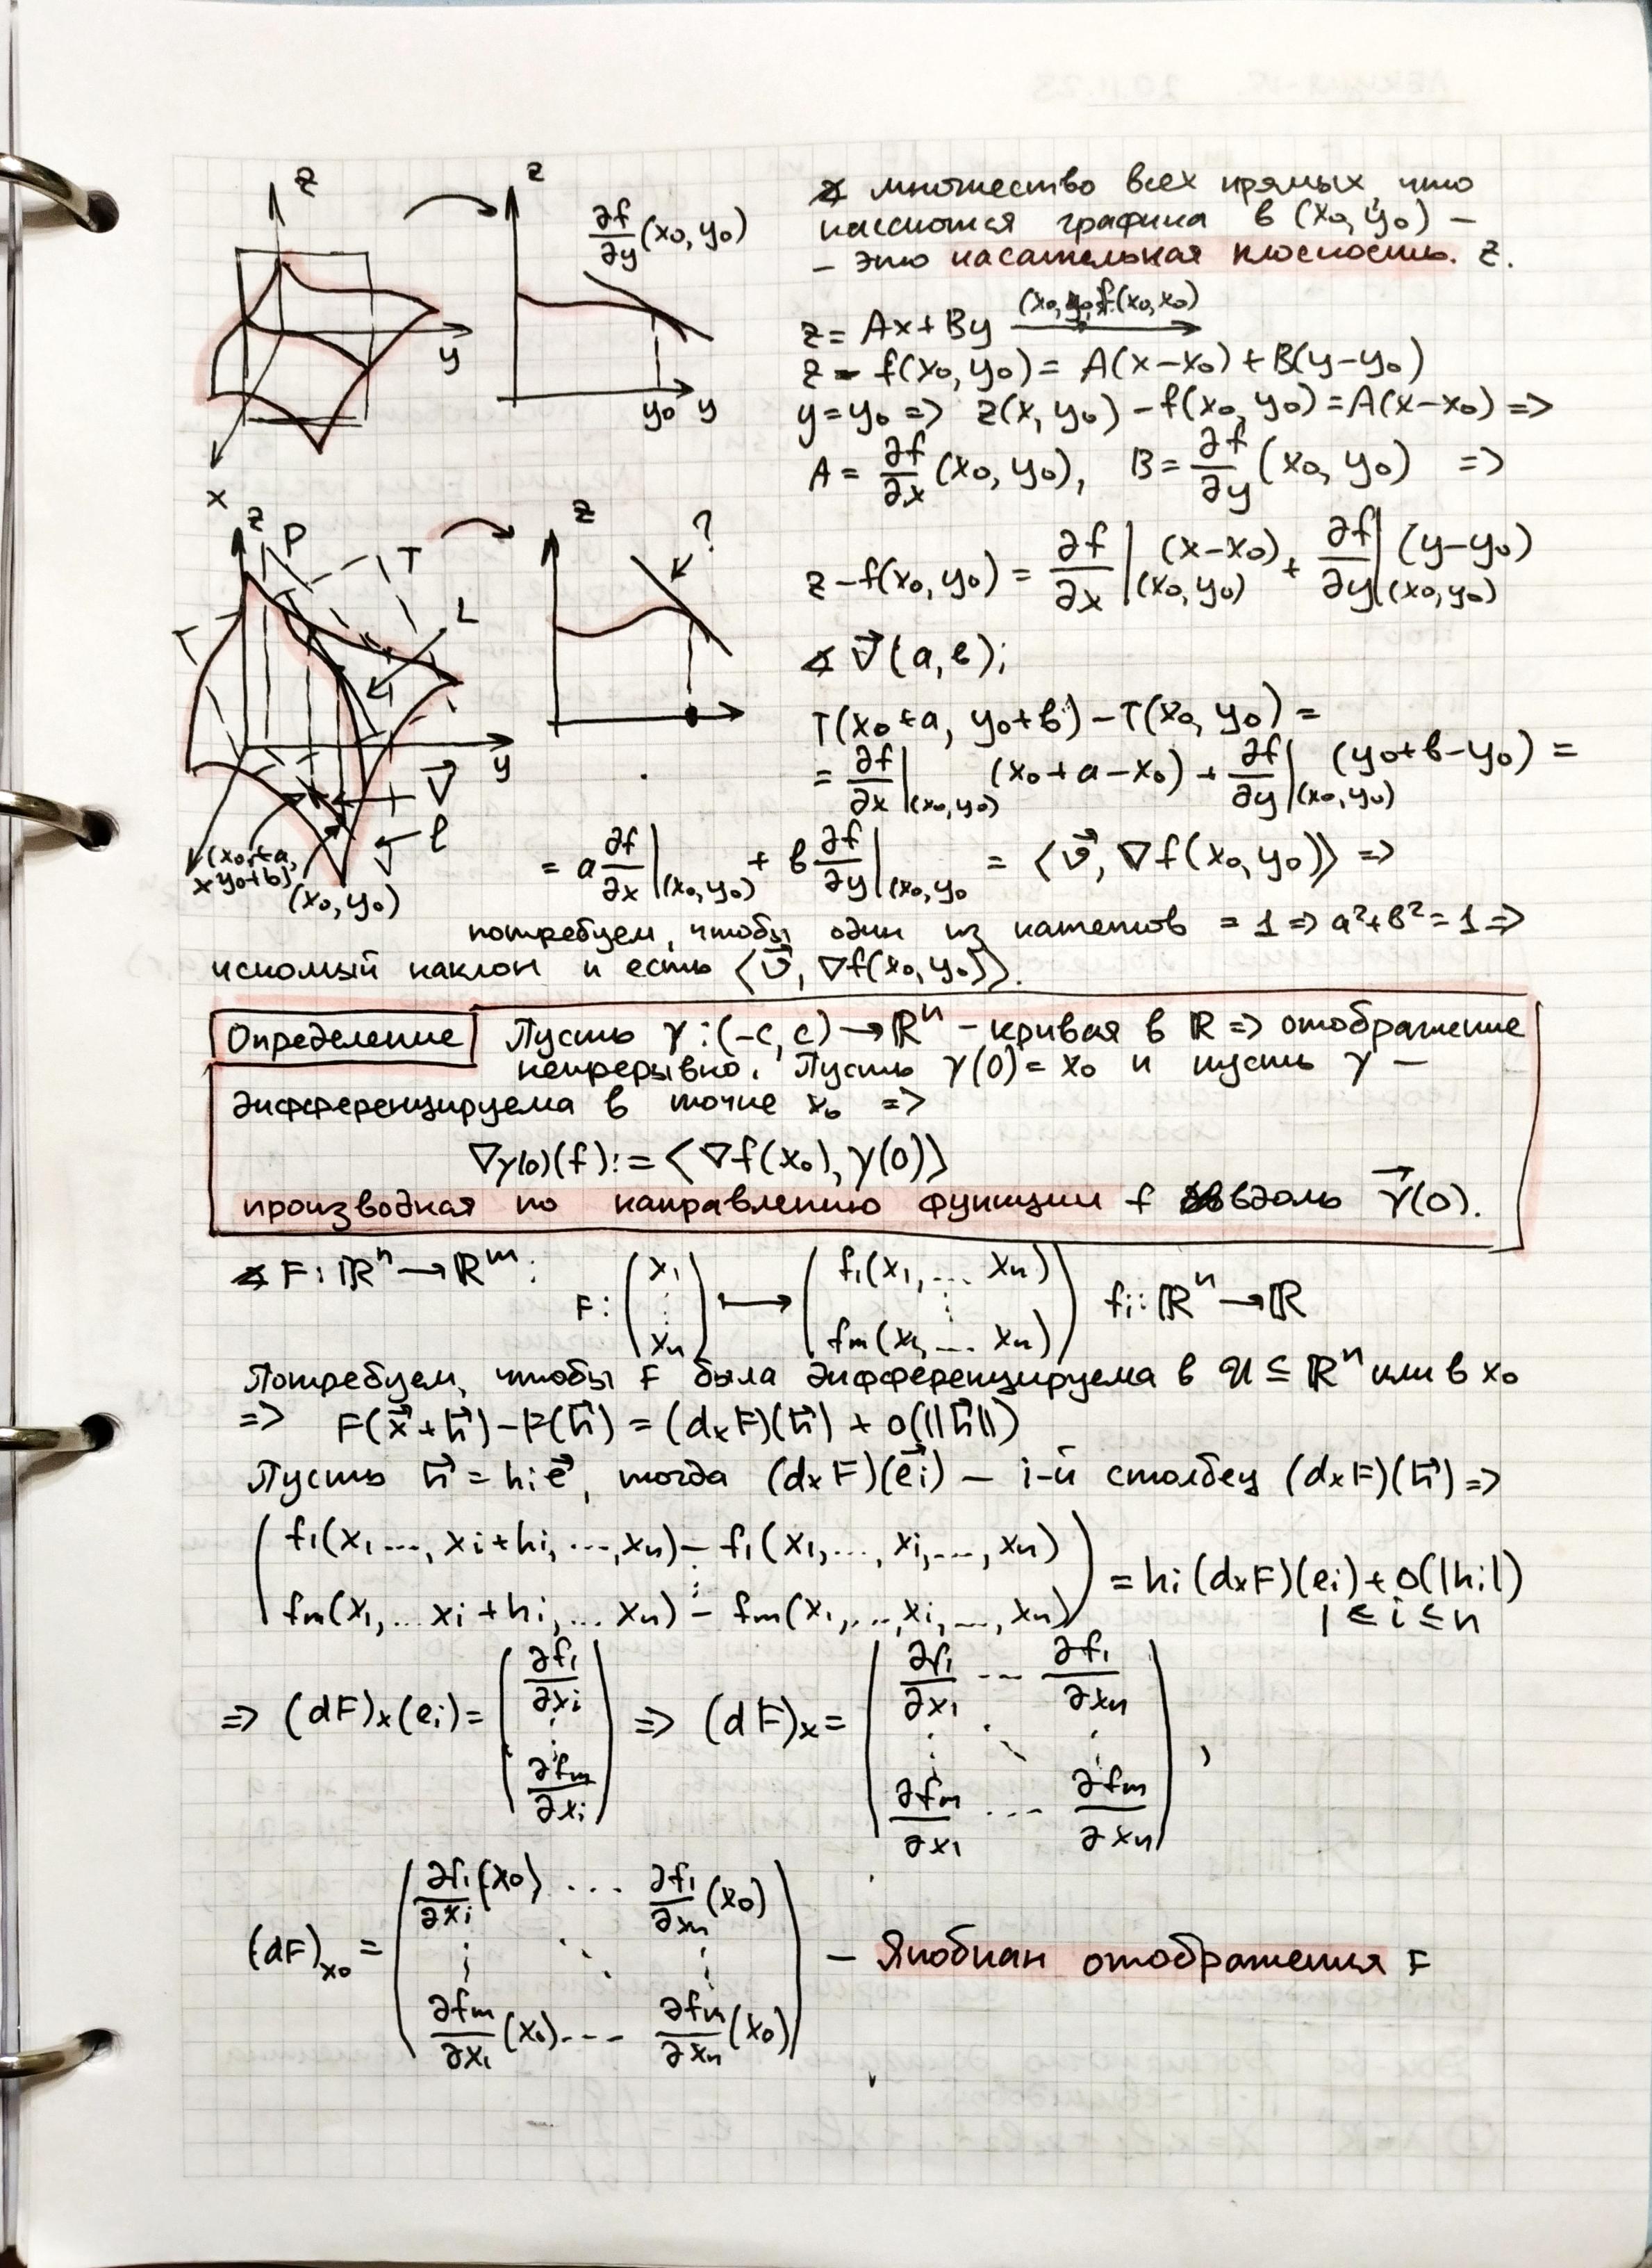 z
z
∂f/∂y (x₀, y₀)
y
x
y₀ y
∢ множество всех прямых, что
касаются графика в (x₀, y₀) –
– это касательная плоскость. z.
z = Ax + By
z – f(x₀, y₀) = A(x–x₀) + B(y–y₀)
y = y₀ => z(x, y₀) – f(x₀, y₀) = A(x–x₀) =>
A = ∂f/∂x (x₀, y₀), B = ∂f/∂y (x₀, y₀) =>
z – f(x₀, y₀) = ∂f/∂x |(x₀, y₀) (x–x₀) + ∂f/∂y |(x₀, y₀) (y–y₀)
z P T L
z ?
y
v⃗
l
(x₀+a,
x y₀+b)
(x₀, y₀)
∢ v⃗(a, b);
T(x₀+a, y₀+b) – T(x₀, y₀) =
= ∂f/∂x |(x₀, y₀) (x₀+a–x₀) + ∂f/∂y |(x₀, y₀) (y₀+b–y₀) =
= a ∂f/∂x |(x₀, y₀) + b ∂f/∂y |(x₀, y₀ = ⟨v⃗, ∇f(x₀, y₀)⟩ =>
потребуем, чтобы один из катетов = 1 => a²+b² = 1 =>
искомый наклон и есть ⟨v⃗, ∇f(x₀, y₀)⟩.
Определение Пусть γ : (–c, c) → ℝⁿ – кривая в ℝ => отображение
непрерывно. Пусть γ(0) = x₀ и пусть γ –
дифференцируема в точке x₀ =>
∇γ(0)(f) := ⟨∇f(x₀), γ(0)⟩
производная по направлению функции f вдоль γ⃗(0).
∢ F : ℝⁿ → ℝᵐ :
F : (x₁ ⋮ xₙ) ⟼ (f₁(x₁, ... xₙ) ⋮ fₘ(x₁, ... xₙ)) fᵢ : ℝⁿ → ℝ
Потребуем, чтобы F была дифференцируема в U ⊆ ℝⁿ или в x₀
=> F(x⃗ + h⃗) – F(h⃗) = (dₓF)(h⃗) + o(||h⃗||)
Пусть h⃗ = hᵢe⃗, тогда (dₓF)(e⃗ᵢ) – i-й столбец (dₓF)(h⃗) =>
(f₁(x₁ ..., xᵢ+hᵢ, ..., xₙ) – f₁(x₁, ..., xᵢ, ..., xₙ)
⋮
fₘ(x₁, ... xᵢ+hᵢ, ... xₙ) – fₘ(x₁, ..., xᵢ, ..., xₙ)) = hᵢ(dₓF)(eᵢ) + o(|hᵢ|)
1 ≤ i ≤ n
=> (dF)ₓ(eᵢ) = (∂f₁/∂xᵢ ⋮ ∂fₘ/∂xᵢ) => (dF)ₓ = (∂f₁/∂x₁ ... ∂f₁/∂xₙ ⋮ ⋱ ⋮ ∂fₘ/∂x₁ ... ∂fₘ/∂xₙ),
(dF)x₀ = (∂f₁/∂xᵢ (x₀) ... ∂f₁/∂xₙ (x₀) ⋮ ⋱ ⋮ ∂fₘ/∂x₁ (x₀) ... ∂fₘ/∂xₙ (x₀)) – Якобиан отображения F